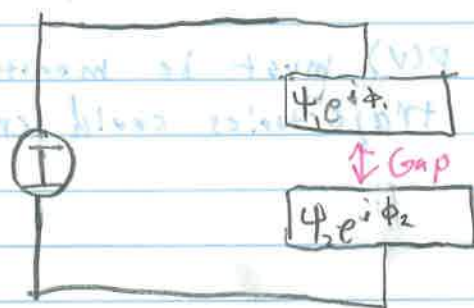 ψ₁e^{iϕ₁}
I
Gap
ψ₂e^{iϕ₂}